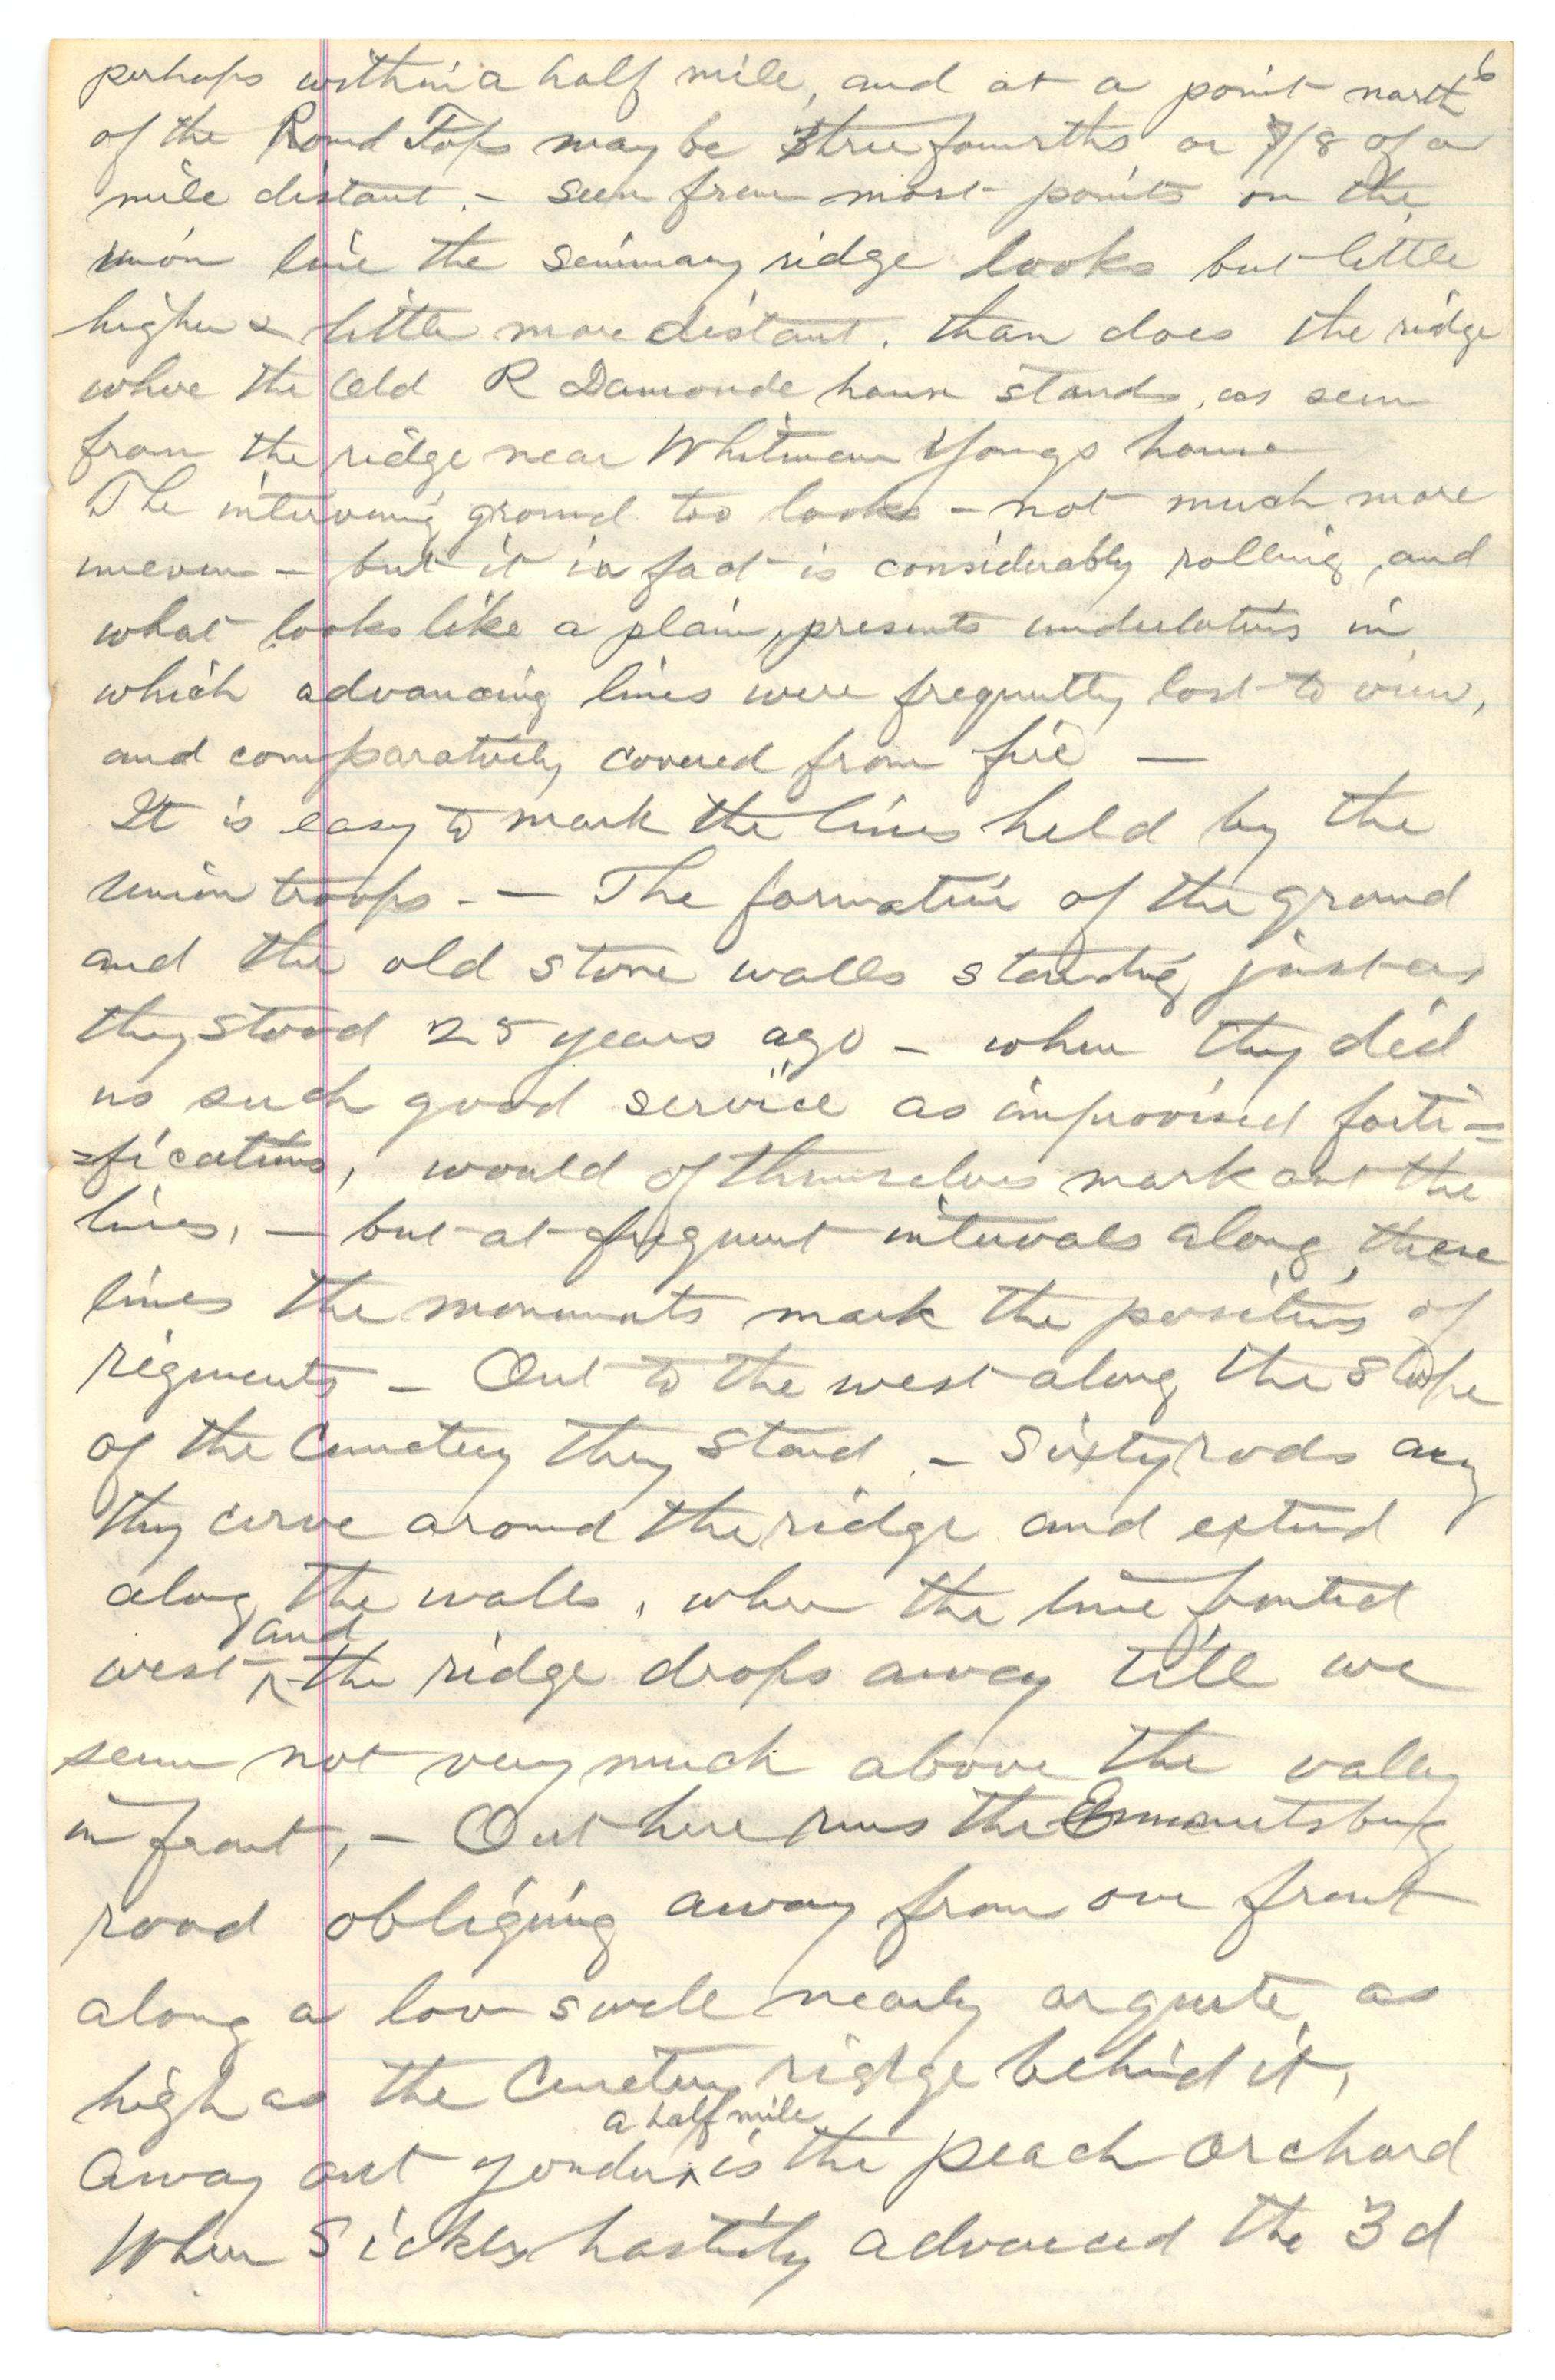 6
perhaps within a half mile, and at a point north
of the Round Tops may be three fourths or 7/8 of a
mile distant. – Seen from most points on the
union line the seminary ridge looks but little
higher & little more distant. than does the ridge
where the Old R Damonde house stands, as seen
from the ridge near Whitman Youngs house
The intervening ground too looks – not much more
uneven – but it in fact is considerably rolling, and
what looks like a plain, presents undulations in
which advancing lines were frequently lost to view,
and comparatively covered from fire —
It is easy to mark the lines held by the
union troops. – The formation of the ground
and the old stone walls standing just as
they stood 25 years ago – when they did
us such good service as improvised forti=
=fications, would of themselves mark out the
lines, — but at frequent intervals along these
lines the monuments mark the positions of
regiments – Out to the west along the slope
of the Cemetery they stand. – Sixty rods away
they curve around the ridge and extend
along the walls, where the line fronted
west and the ridge drops away till we
seem not very much above the valley
in front, – Out here runs the Emmetsburg
road obliquing away from our front
along a low swell nearly or quite as
high as the Cemetery ridge behind it,
Away out yonder a half mile is the peach orchard
Where Sickles hastily advanced the 3d